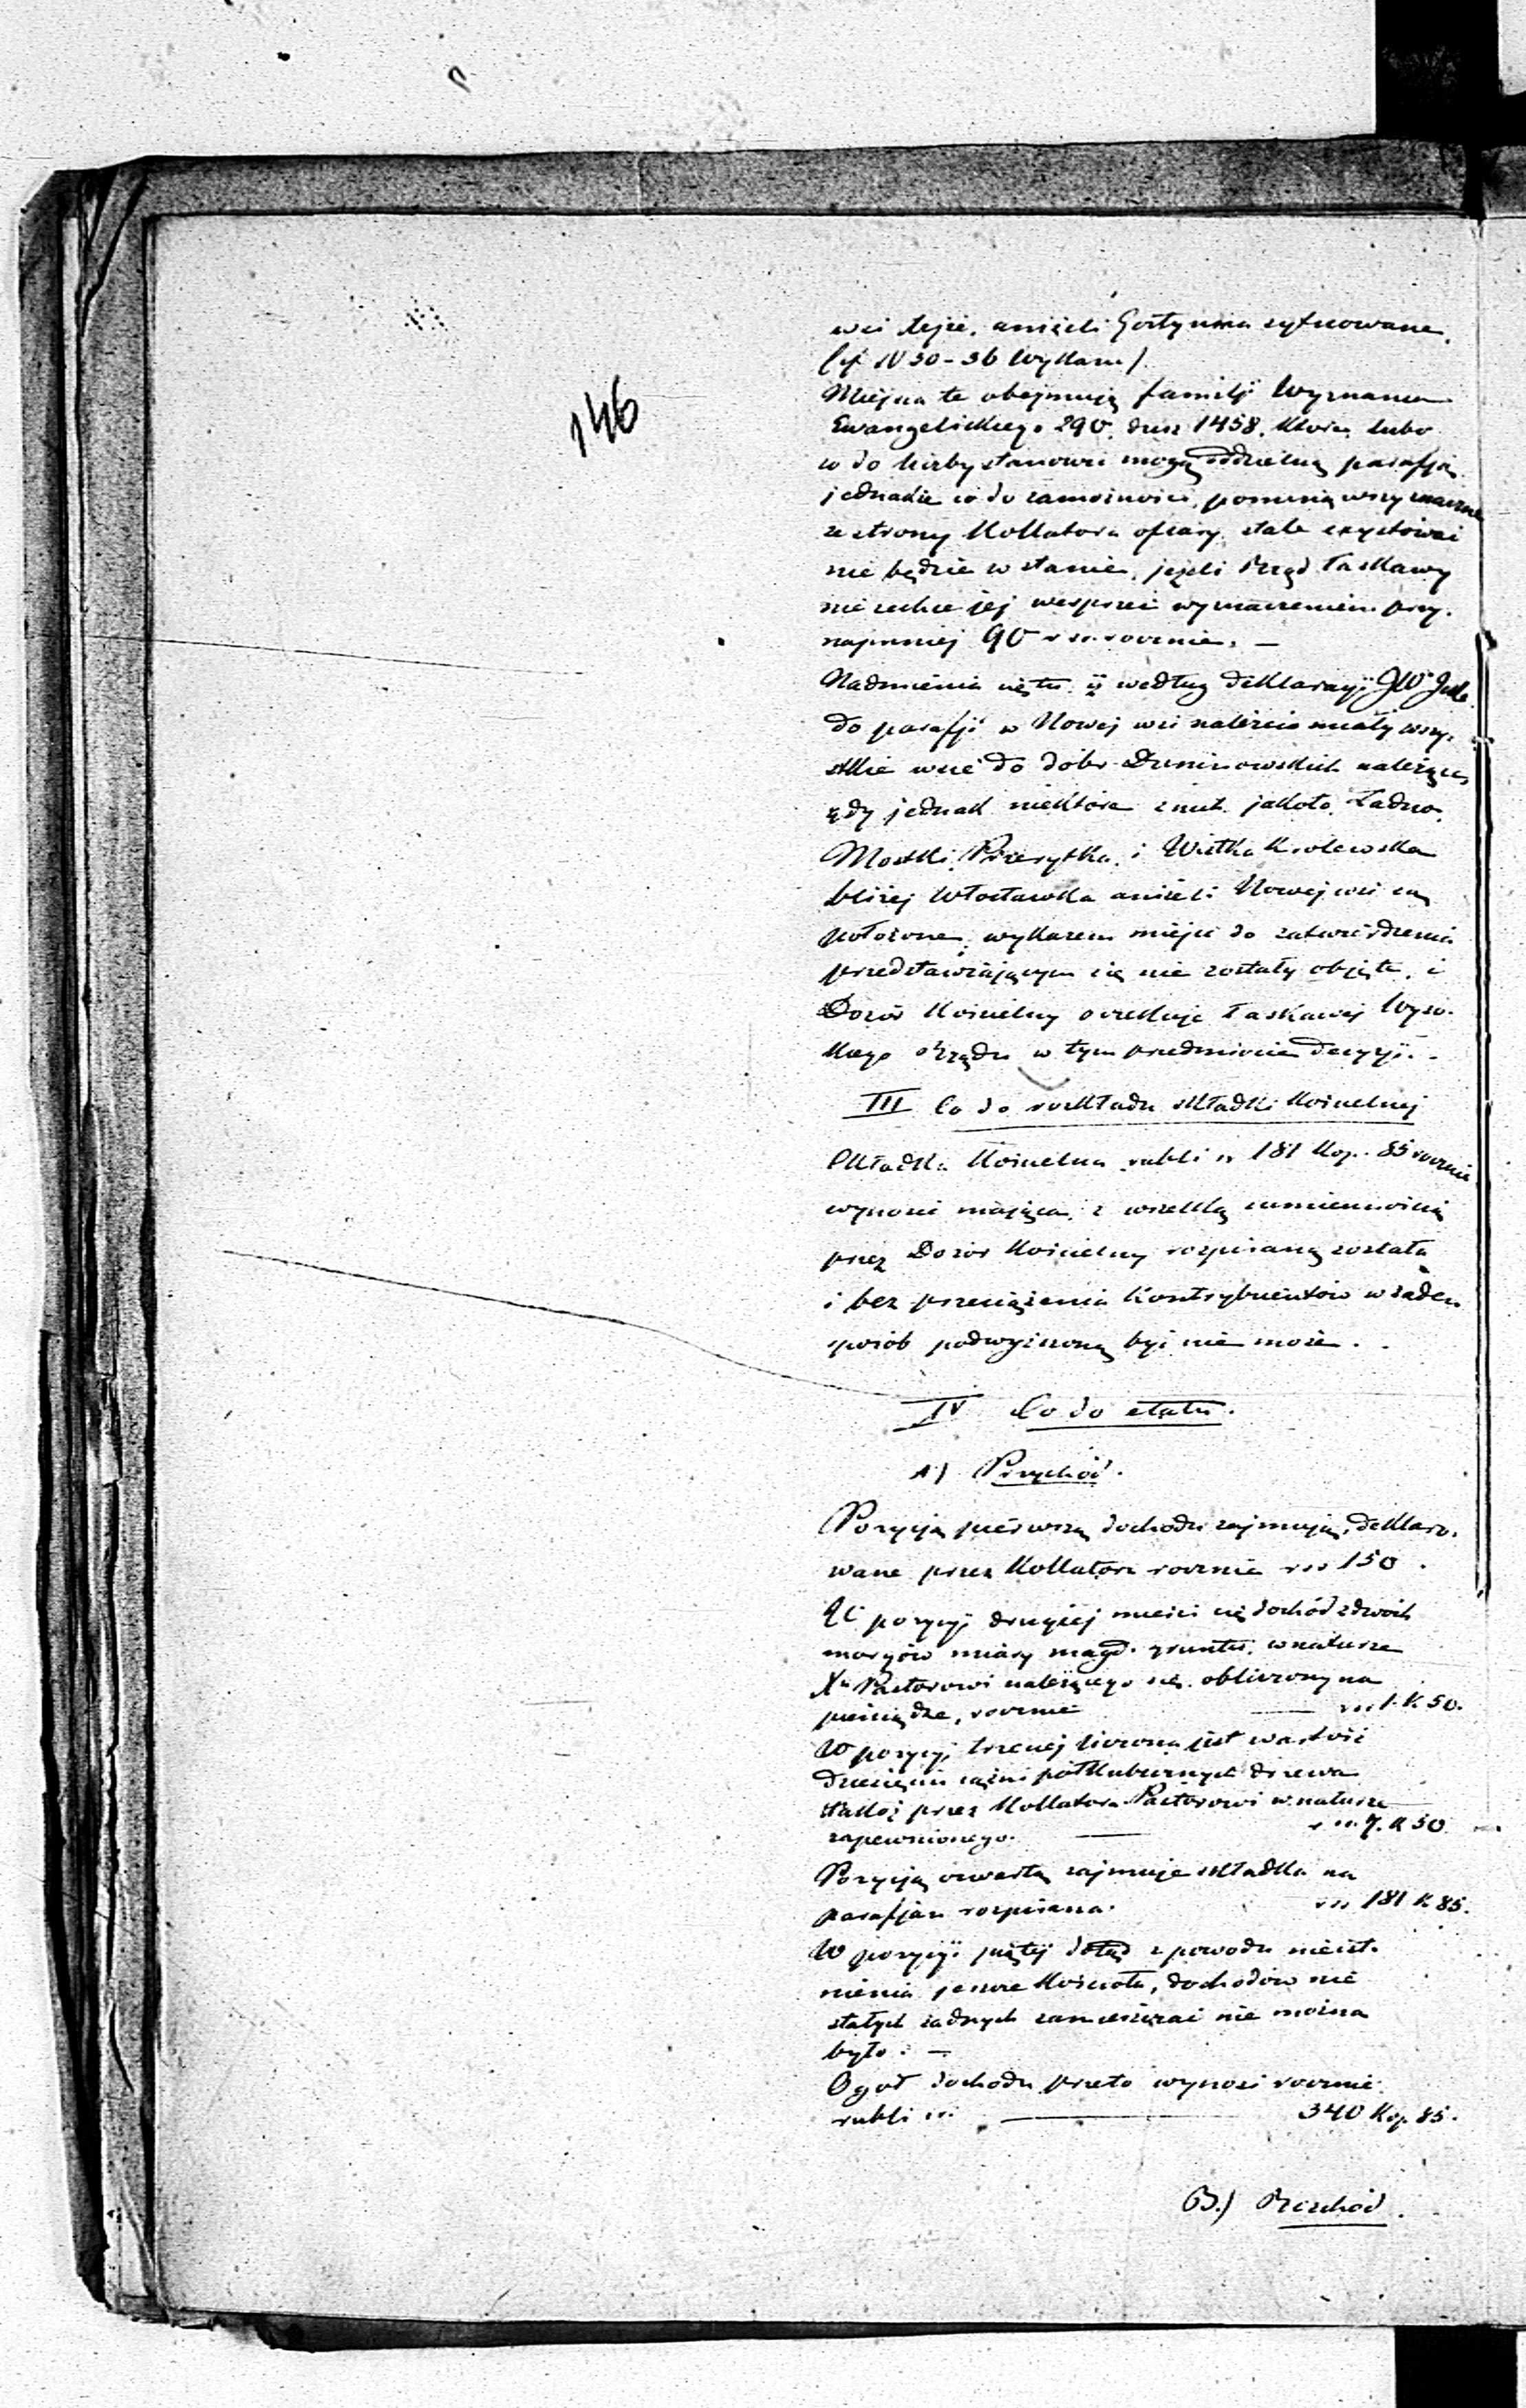 146
wsi tejże, aniżeli Gostynina sytuowane.
(cf N 30-36 Wykazu)
Miejsca te obejmują familji Wyznania
Ewangelickiego 290. dusz 1458. które lubo
co do liczby stanowić mogą oddzielną parafją
jednakże co do zamożności, pominąwszy znaczne
ze strony Kollatora ofiary, stale exystować
nie będzie w stanie, jeżeli Rząd Łaskawy
nie zechce jej wesprzeć wyznaczeniem przy-
najmniej 90 rsr. rocznie. —
Nadmienia się tu, iż według deklaracyji JW
do parafji w Nowej wsi należeć miały wszy-
stkie wsie do dóbr Duninowskich należące,
gdy jednak niektóre z nich jakoto, Ładno,
Mostki, Przerytka, i Wistka Królewska
bliżej Włocławka aniżeli Nowej wsi są
położone, wykazem miejsc do zatwierdzenia
przedstawiającym się nie zostały objęte, i
Dozór Kościelny oczekuje Łaskawej Wyso-
kiego Rządu w tym przedmiocie decyzji. -
III Co do rozkładu składki Kościelnej
Składka Kościelna rubli sr 181 Kop. 85 rocznie
wynosić mająca, z wszelką sumiennością
przez Dozór Kościelny rozpisaną została
i bez przeciążenia Kontrybuentów w żaden
sposób podwyższoną być nie może. -
IV Co do etatu.
A) Przychód.
Pozycją pierwszą dochodu zajmują, deklaro-
wane przez Kollatora rocznie rsr 150.
W pozycji drugiej mieści się dochód z dwóch
morgów miary magd. gruntu, w naturze
Xu Pastorowi należącego się, obliczony na
pieniądze, rocznie — rsr 1. K 50.
W pozycji trzeciej liczona jest wartość
dziesięciu sążni półkubicznych drzewa
przez Kollatora Pastorowi w naturze
zapewnionego. — rsr 7. K 50
Pozycją czwartą zajmuje składka na
parafjan rozpisana. rsr 181 K 85.
W pozycyi piątej dotąd z powodu nieist-
nienia jeszcze Kościoła, dochodów nie
stałych żadnych zamieszczać nie można
było. —
Ogół dochodu przeto wynosi rocznie
rubli sr. — 340 Kop. 85.
B.) Rozchód.